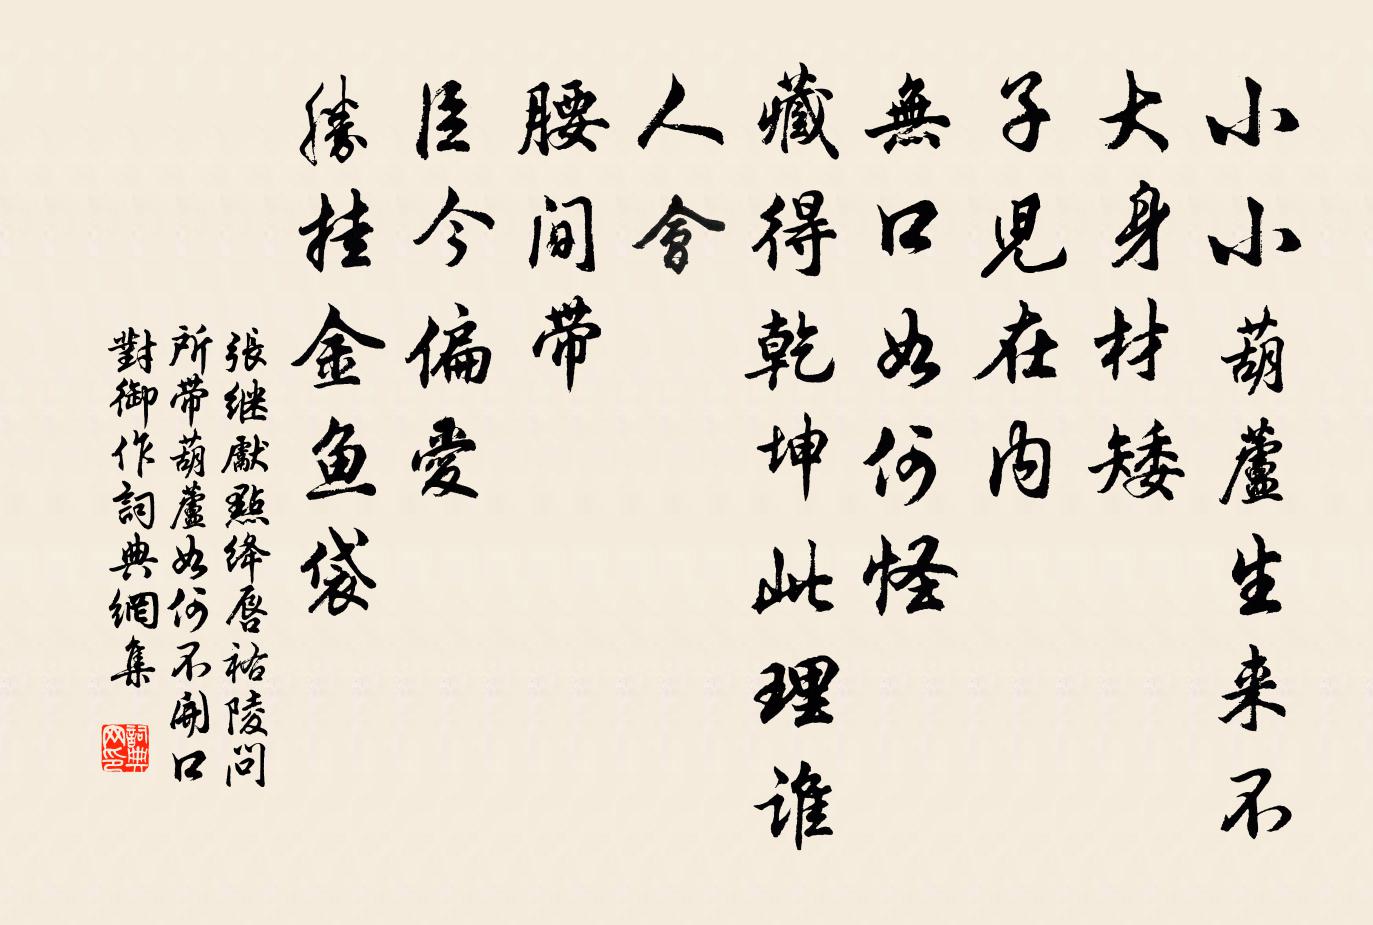 小小葫蘆生来不
大身材矮
子兒在内
無口如何怪
藏得乾坤此理誰
人會
腰间带
臣今偏愛
勝挂金鱼袋
張继獻點绛唇祐陵問
所带葫蘆如何不開口
對御作詞典網集
詞典网印